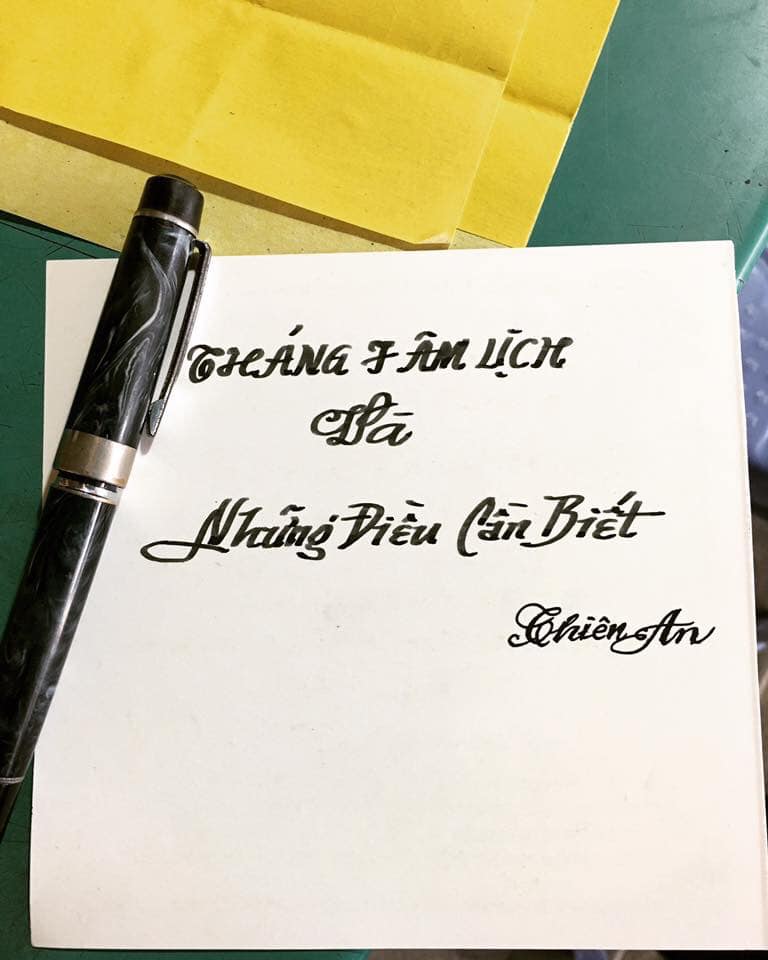 THÁNG 7 ÂM LỊCH
Và
Những Điều Cần Biết
Thiên Ân